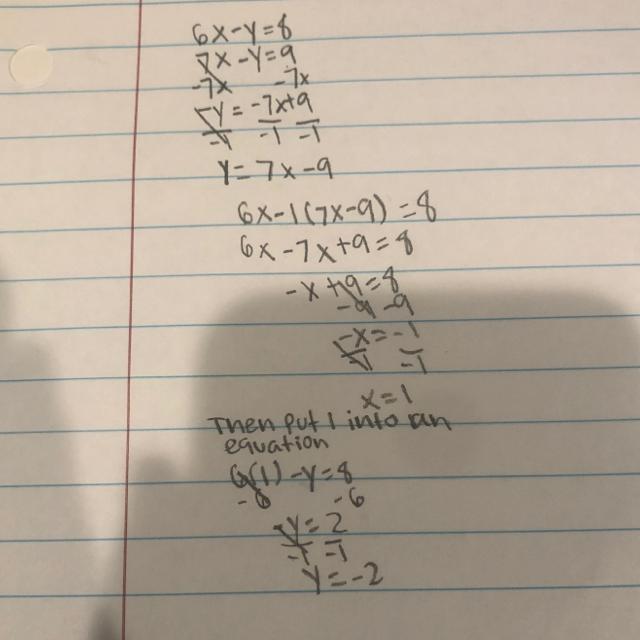 6x-y=8
7x-y=9
-7x -7x
-y=-7x+9
-1 -1 -1
y=7x-9
6x-1(7x-9)=8
6x-7x+9=8
-x+9=8
-9 -9
-x=-1
-1 -1
x=1
Then put 1 into an
equation
6(1)-y=8
-6 -6
-y=2
-1 -1
y=-2